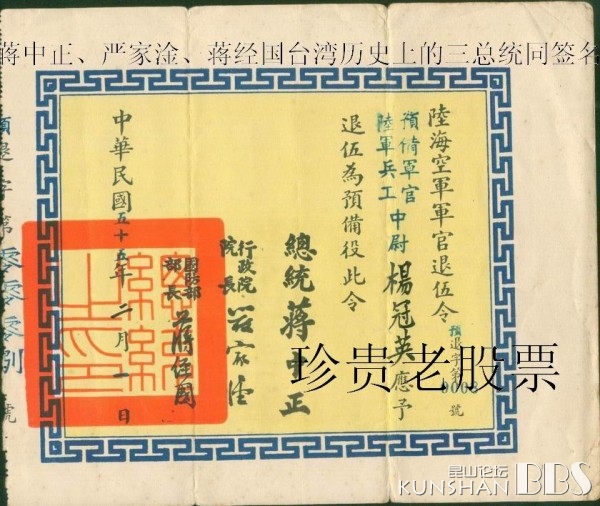 蒋中正、严家淦、蒋经国台湾历史上的三总统同签名
陸海空軍軍官退伍令
預退字第0008號
預備軍官
陸軍兵工 中尉 楊冠英應予
退伍為預備役此令
總統 蔣中正
行政院
院長 嚴家淦
國防部
部長 蔣經國
中華民國五十五年二月一日
總統之印
預退字第零零零捌號
珍贵老股票
昆山论坛
KUNSHAN BBS